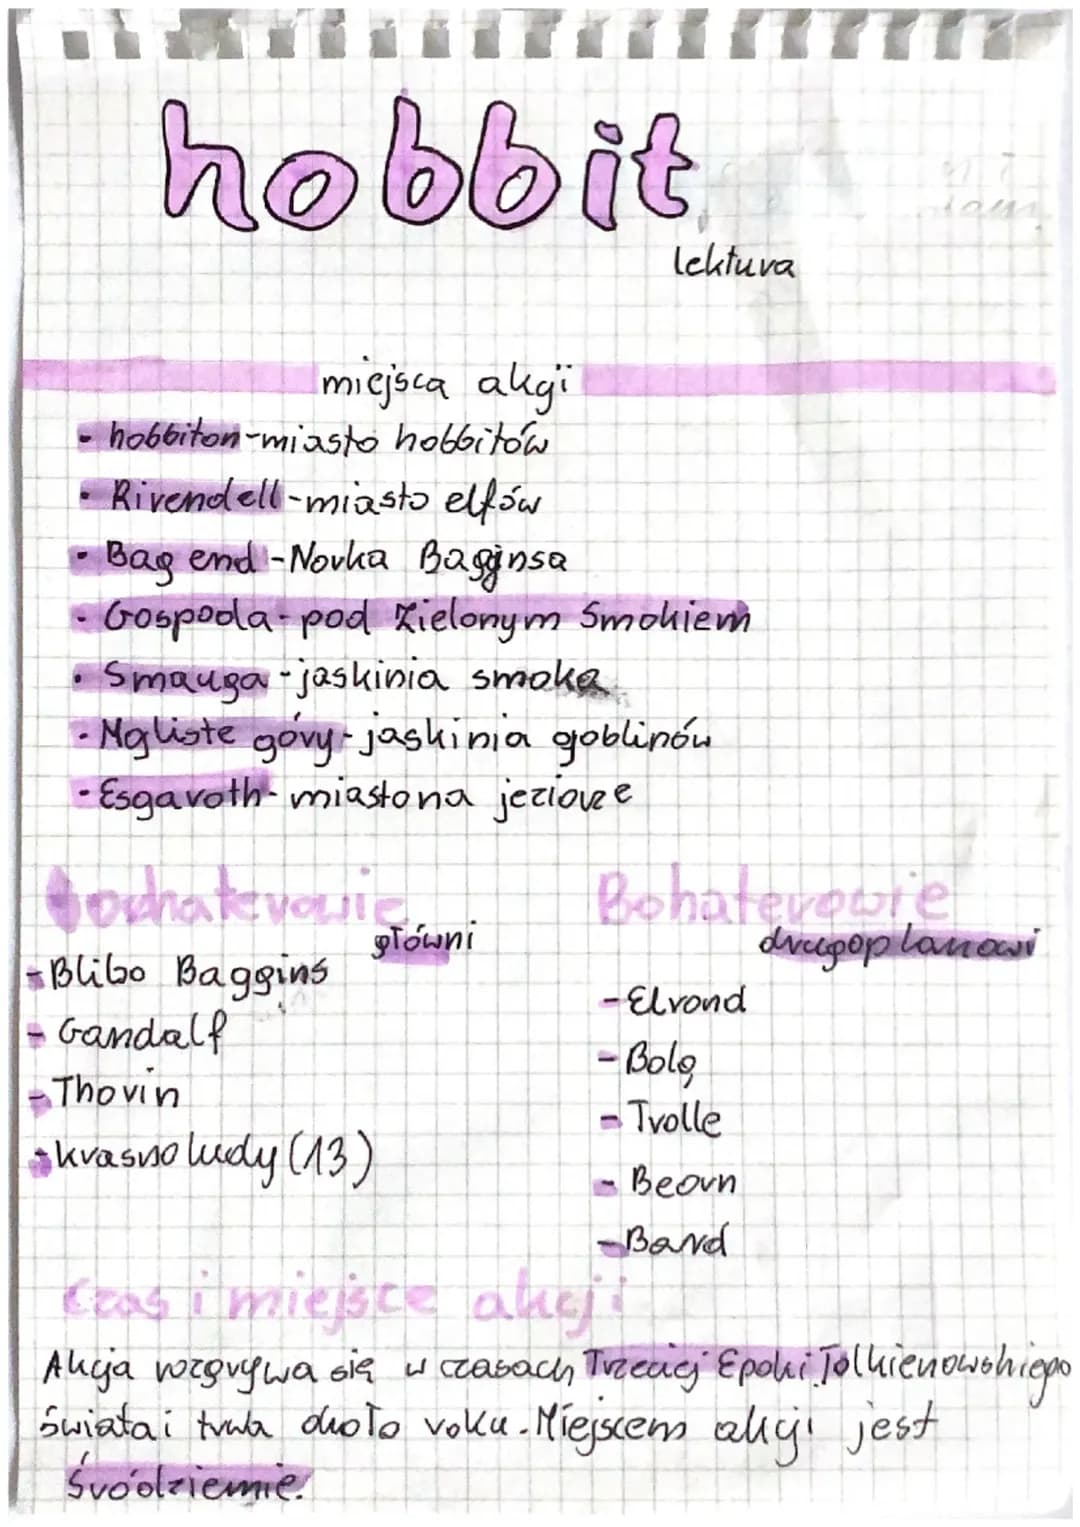 hobbit
lektura
miejsca akcji
• hobbiton-miasto hobbitów
• Rivendell-miasto elfów
• Bag end-Norka Bagginsa
• Gospoda-pod Zielonym Smokiem
• Smauga-jaskinia smoka
• Mgliste góry-jaskinia goblinów
• Esgaroth-miasto na jeziorze
Bochaterowie
główni
Bohaterowie
drugoplanowi
-Blibo Baggins
-Gandalf
-Thorin
-krasnoludy (13)
-Elrond
-Bolg
-Trolle
-Beorn
-Bard
czas i miejsce akcji
Akcja rozgrywa się w czasach Trzeciej Epoki Tolkienowskiego
świata i trwa około roku. Miejscem akcji jest
Śródziemie.